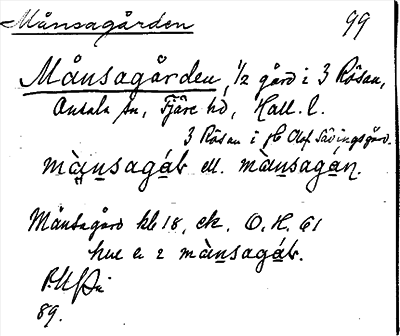 Månsagården 99
Månsagården, 1/2 gård i 3 Rösan,
Onsala sn, Fjäre hd, Hall. l.
3 Rösan i fb Olof Sävingsgård.
màṉsagáḇ ell. mansagáṉ.
Månsagård kb 18, ek. O. H. 61
hue a 2 màṉsagáḇ.
89.